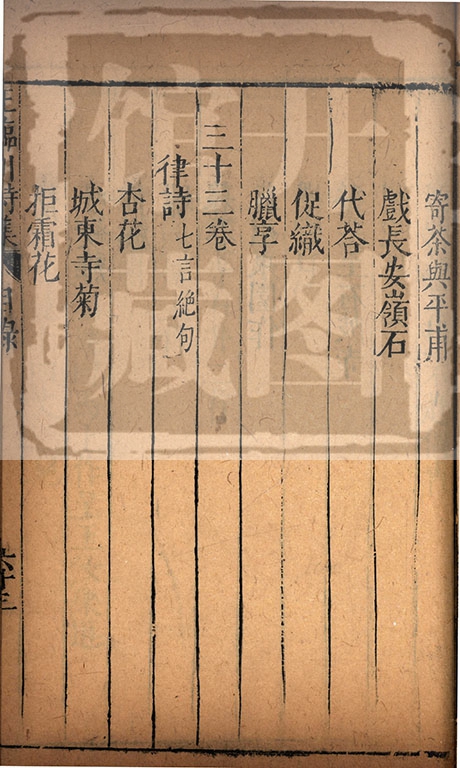 寄茶與平甫
戲長安嶺石
代荅
促織
臘享
三十三卷
律詩 七言絕句
杏花
城東寺菊
拒霜花
王臨川詩集 目錄 六十三